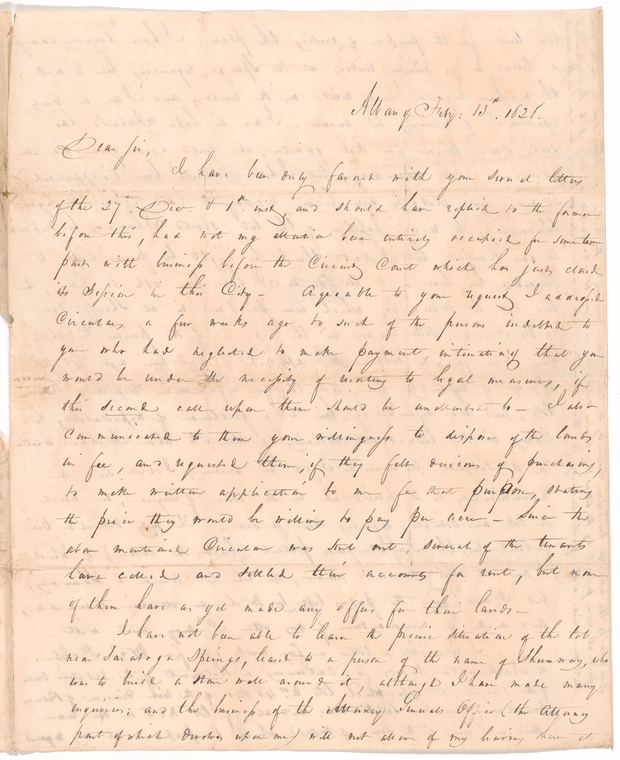 Albany Feby: 13th. 1828.
Dear Sir,
I have been duly favored with your several letters
of the 27th. Dec. & 1st. inst, and should have replied to the former
before this, had not my attention been entirely occupied for sometime
past with business before the Circuit Court which has just closed
its Session in this City – Agreeable to your request I addressed
Circulars a few weeks ago to such of the persons indebted to
you who had neglected to make payment, intimating that you
would be under the necessity of resorting to legal measures, if
this second call upon them should be unattended to – I also
communicated to them your willingness to dispose of the lands
in fee, and requested them, if they felt desirous of purchasing,
to make written application to me for that purpose, stating
the price they would be willing to pay per acre – Since the
above mentioned Circular was sent out, several of the tenants
have called and settled their accounts for rent, but none
of them have as yet made any offers for their lands –
I have not been able to learn the precise situation of the lot
near Saratoga Springs, leased to a person of the name of Shumway, who
was to build a stone wall around it, although I have made many
inquiries; and the business of the Attorney Generals Office (the Attorney
part of which devolves upon me) will not allow of my leaving here at